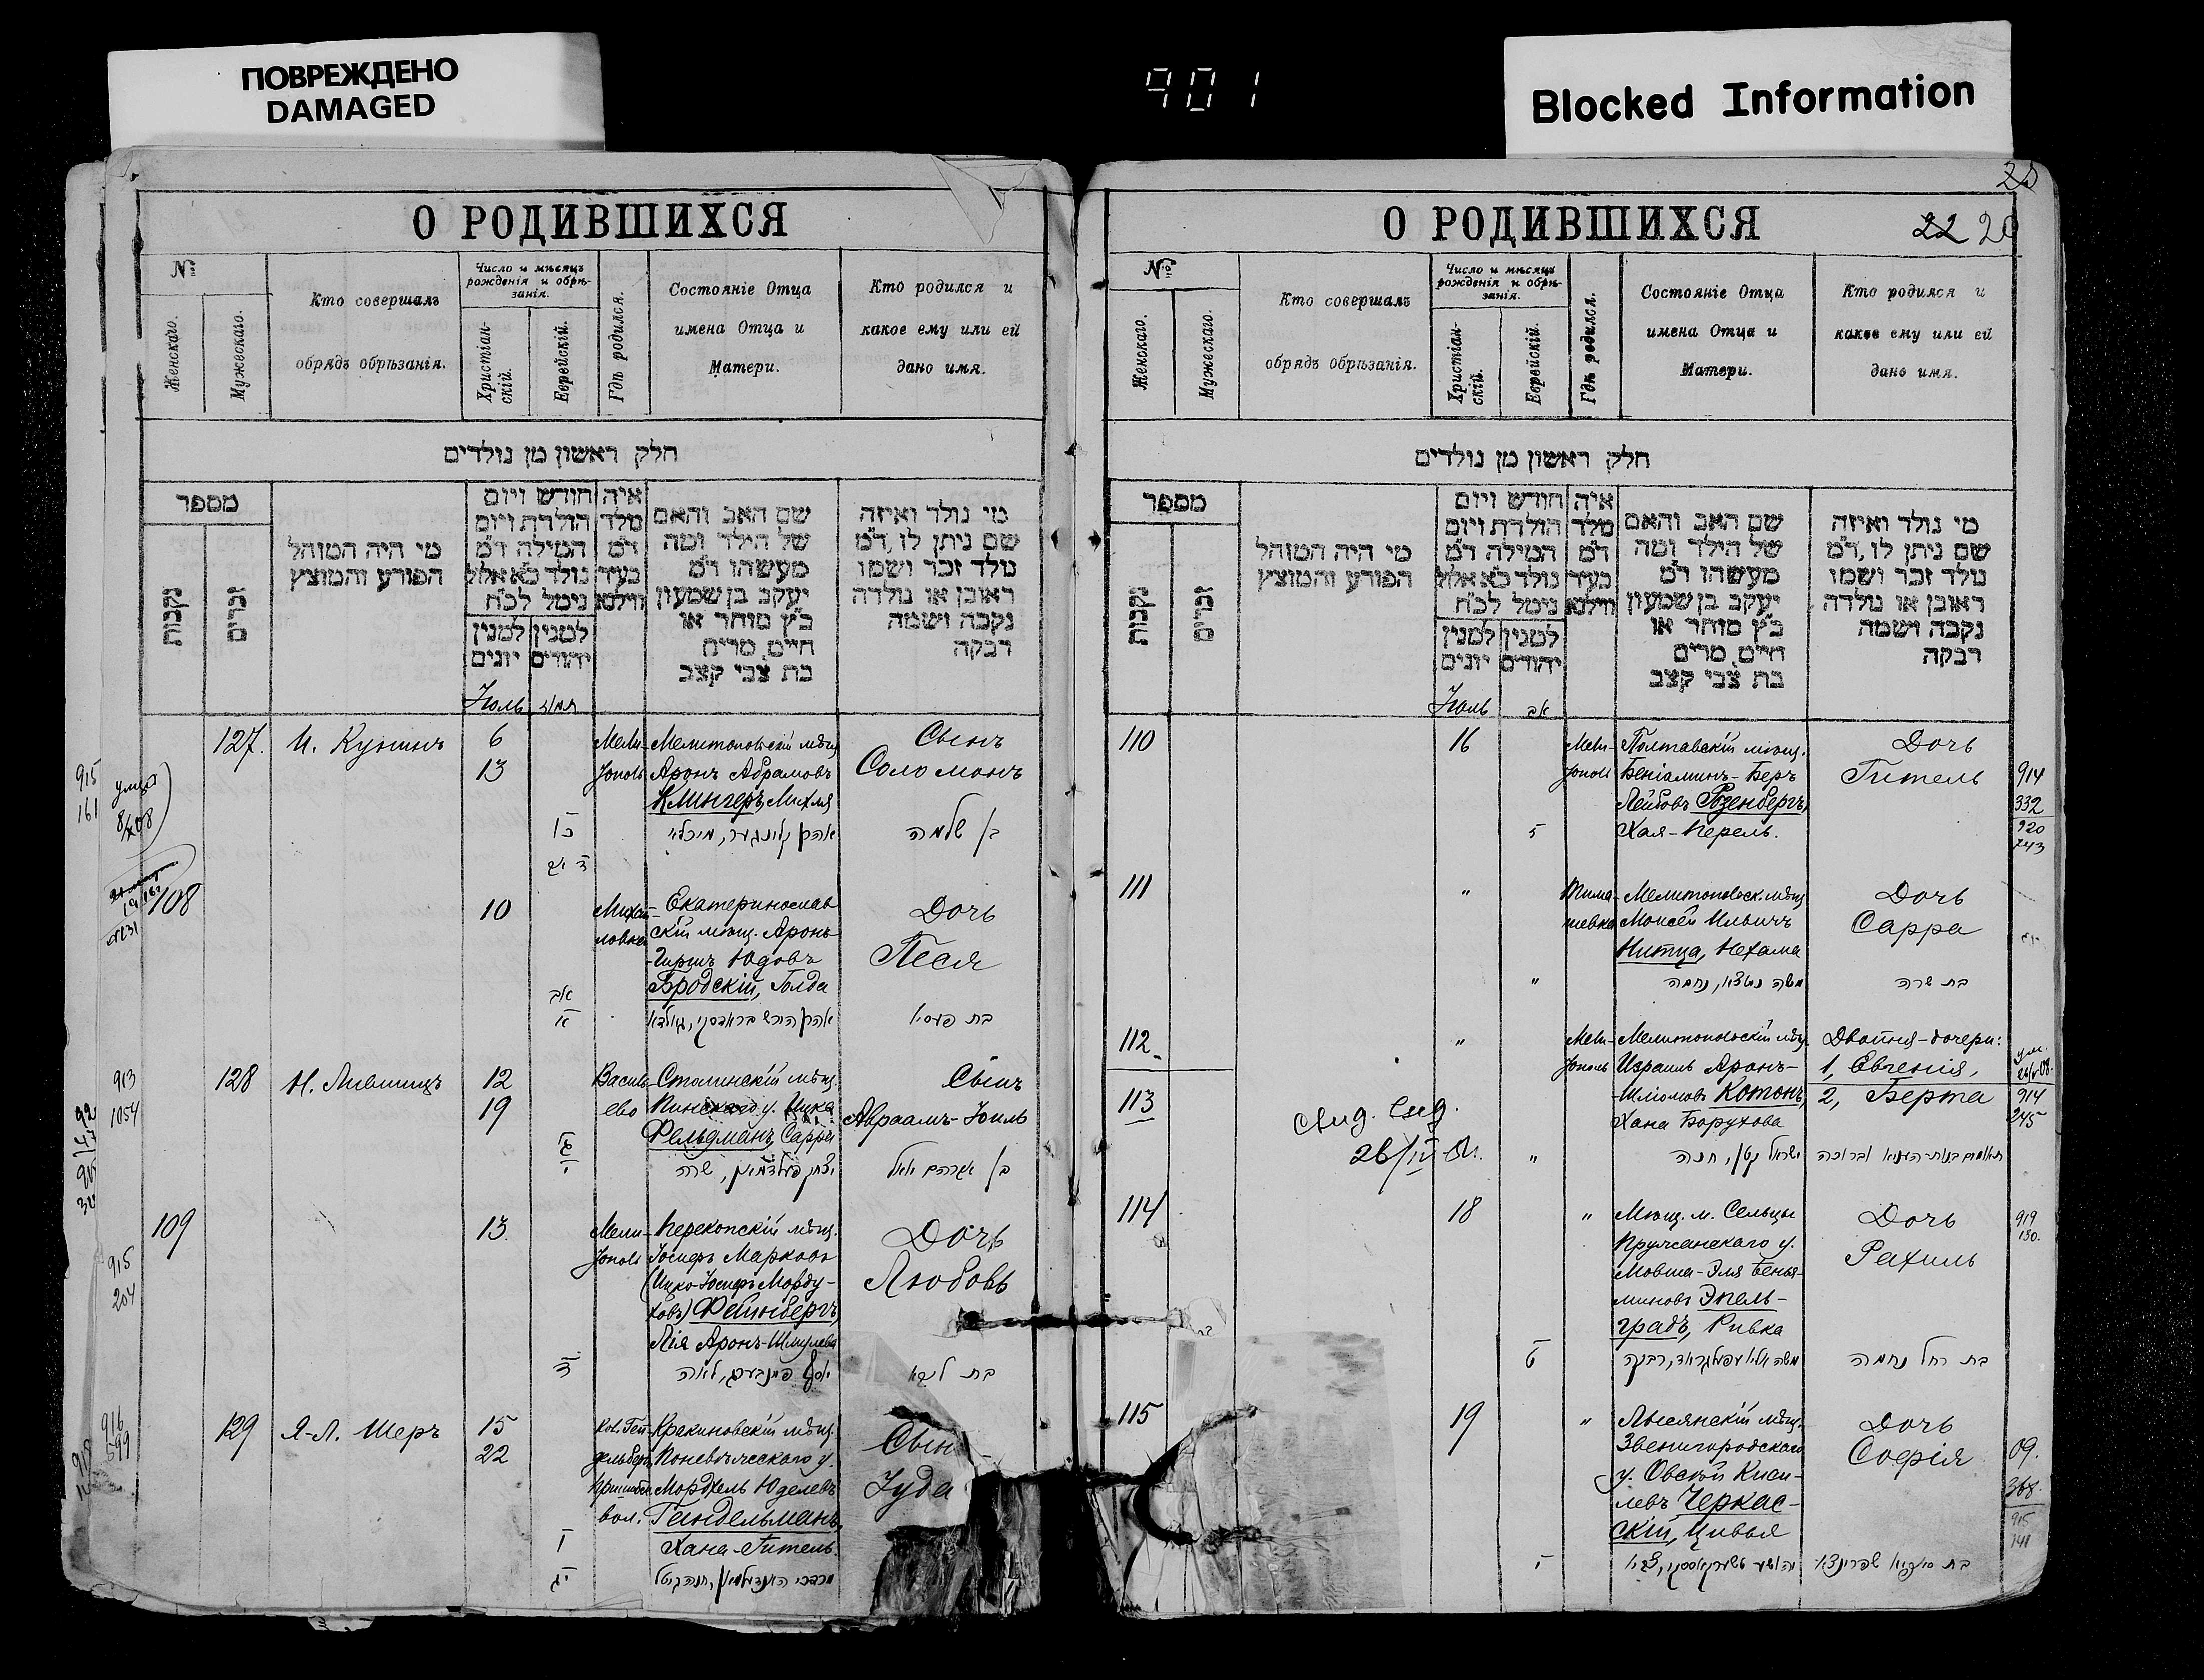 ПОВРЕЖДЕНО
DAMAGED
901
Blocked Information
О РОДИВШИХСЯ
№
Женскаго.
Мужескаго.
Кто совершалъ
обрядъ обрѣзанія.
Число и мѣсяцъ
рожденія и обрѣ-
занія.
Христіан-
скій.
Еврейскій.
Гдѣ родился.
Состояніе Отца
имена Отца и
Матери.
Кто родился и
какое ему или ей
дано имя.
חלק ראשון מן נולדים
מספר
נקבות
זכרים
מי היה המוהל
הפורע והמוצץ
חודש ויום
הולדת ויום
המילה ד״מ
נולד כ״א אלול
נימל לכ״ח
למנין יונים
למנין יהודים
איה
מלד
ד״מ
בעיר
ווילנא
שם האב והאם
של הילד ומה
מעשהו ד״מ
יעקב בן שמעון
כ״ץ סוחר או
חיים, מרים
בת צבי קצב
מי נולד ואיזה
שם ניתן לו, ד״מ
נולד זכר ושמו
ראובן או נולדה
נקבה ושמה
רבקה
Іюль
תמוז
127. И. Кунинъ 6 Мели- Мелитопольскій мѣщ. Сынъ
13 тополь Аронъ Абрамовъ Соломонъ
Клингеръ, Михля
אהרן קלינגער, מיכליא בן שלמה
915
161
108 10 Михай- Екатеринослав Дочь
ловка скій мѣщ. Аронъ-
Гиршъ Юдовъ Песя
Бродскій, Голда
אב
א אהרן הירש בראדסקי, גולדא בת פעסיא
913
1054
128 Н. Лившицъ 12 Василь- Столинскій мѣщ. Сынъ
19 ево Пинскаго у. Ицка Авраамъ-Іоиль
Фельдманъ, Сарра
יצחק פעלדמאן, שרה בן אברהם יואל
109 13. Мели- Перекопскій мѣщ. Дочь
тополь Іосифъ Марковъ
(Ицко-Іосифъ Морду- Любовь
ховъ) Фейнбергъ,
Лія Аронъ-Шмулева
915
204
יוסף פיינבערג, לאה בת ליבא
916
599
129 Я-Л. Шеръ 15 Кол. Гей- Кракиновскій мѣщ. Сын
22 дельберг, Поневѣжскаго у.
Пришибск. Мордхель Юделевъ Іуда
вол. Гандельманъ,
Хана-Гитель.
מרדכי האנדילמאן, חנה גיטל
О РОДИВШИХСЯ
22 20
№
Женскаго.
Мужескаго.
Кто совершалъ
обрядъ обрѣзанія.
Число и мѣсяцъ
рожденія и обрѣ-
занія.
Христіан-
скій.
Еврейскій.
Гдѣ родился.
Состояніе Отца
имена Отца и
Матери.
Кто родился и
какое ему или ей
дано имя.
חלק ראשון מן נולדים
מספר
נקבות
זכרים
מי היה המוהל
הפורע והמוצץ
חודש ויום
הולדת ויום
המילה ד״מ
נולד כ״א אלול
נימל לכ״ח
למנין יונים
למנין יהודים
איה
מלד
ד״מ
בעיר
ווילנא
שם האב והאם
של הילד ומה
מעשהו ד״מ
יעקב בן שמעון
כ״ץ סוחר או
חיים, מרים
בת צבי קצב
מי נולד ואיזה
שם ניתן לו, ד״מ
נולד זכר ושמו
ראובן או נולדה
נקבה ושמה
רבקה
Іюль
אב
110 16 Мели- Полтавскій мѣщ. Дочь
тополь Беніаминъ-Беръ Гитель 914
Лейбовъ Розенбергъ, 332
ז Хая-Перель. 920
743
111 " Тима- Мелитопольск. мѣщ. Дочь
шевка Моисей Ильичъ Сарра
Нитца, Нехама
" משה ניטצא, נחמה בת שרה
112 " Мели- Мелитопольскій мѣщ. Двойня-дочери:
тополь Израиль Аронъ- 1, Евгенія,
113 Шліомовъ Котонъ, 2, Берта 914
Хана Борухова 245
26/IV
" ישראל קטן, חנה תאומים בנות
114 18 " Мѣщ. м. Сельцы Дочь 919
Пружанскаго у. 130.
Мовша-Эля Бенья- Рахиль
миновъ Эпель-
градъ, Ривка
ט משה אליא עפעלגראד, רבקה בת רחל נחמה
115 19 " Лысянскій мѣщ. Дочь
Звенигородскаго Софія 09.
у. Овсѣй Киси- 368
левъ Черкас- 915
скій, Цивья 141
י